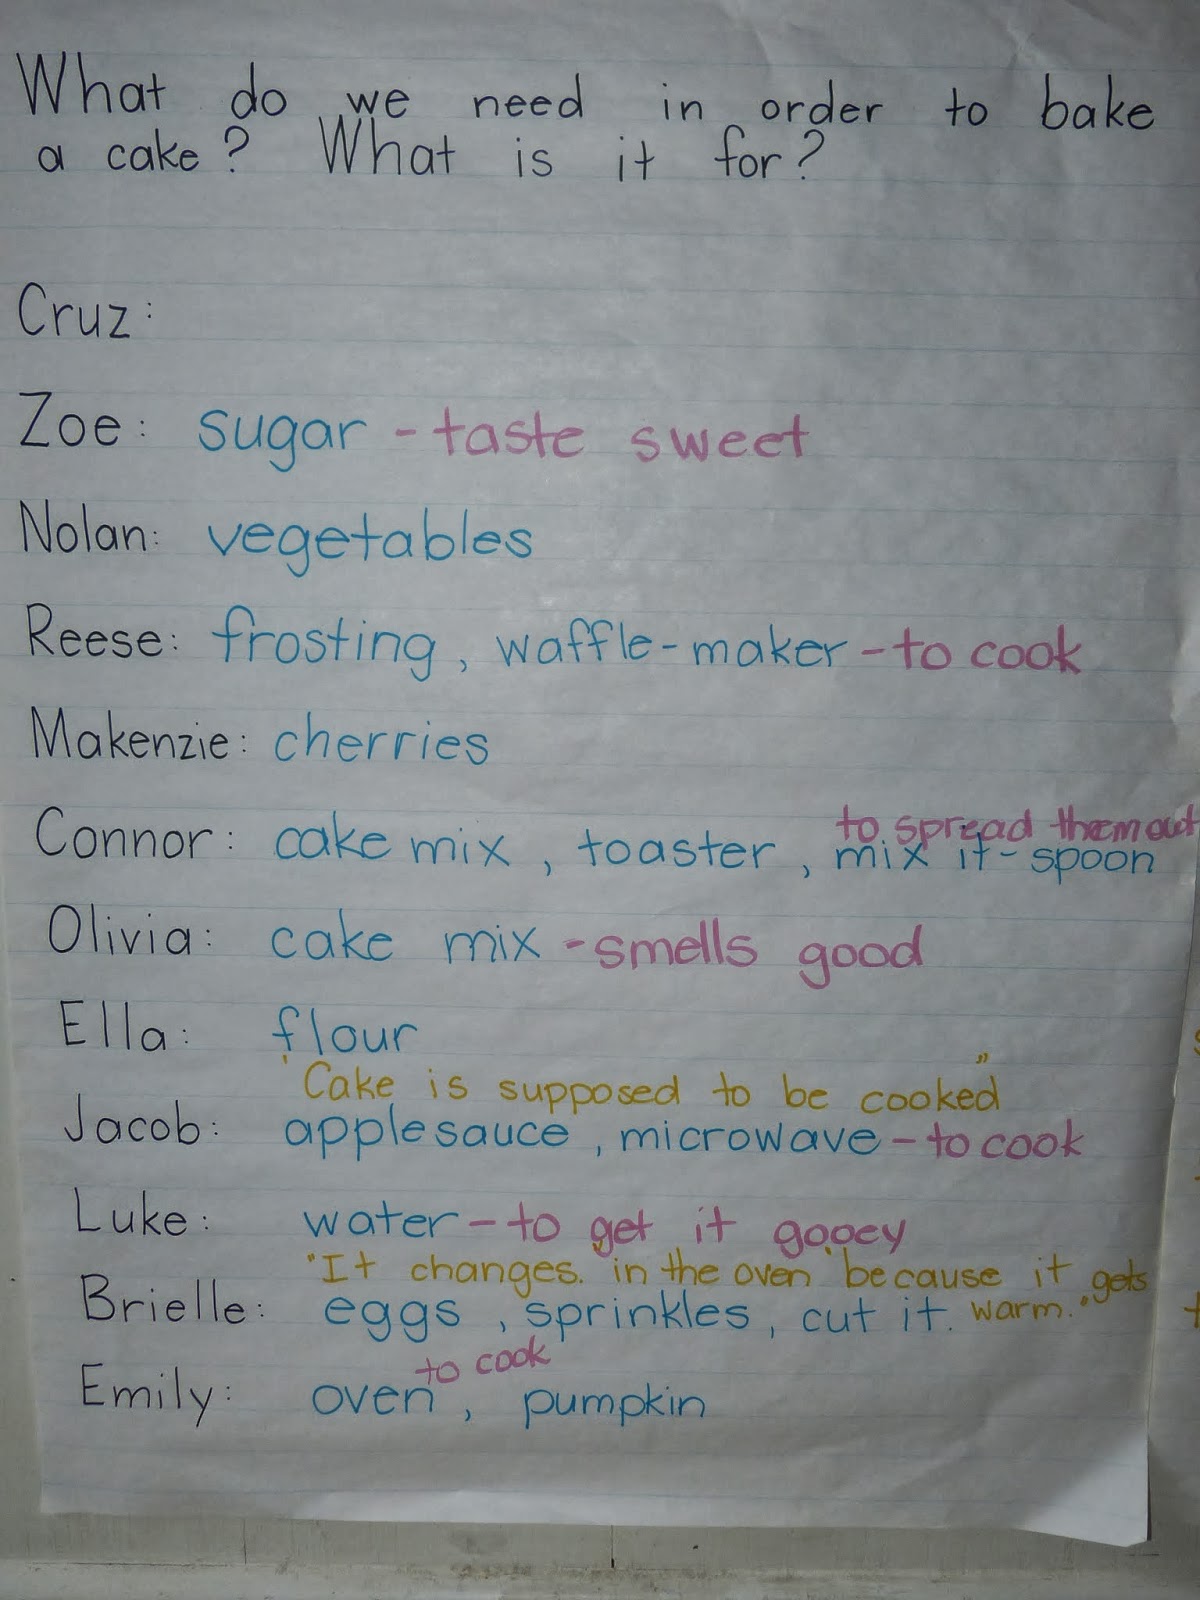 What do we need in order to bake
a cake? What is it for?
Cruz:
Zoe: sugar - taste sweet
Nolan: vegetables
Reese: frosting, waffle-maker - to cook
Makenzie: cherries
to spread them out
Connor: cake mix, toaster, mix it - spoon
Olivia: cake mix - smells good
Ella: flour
"Cake is supposed to be cooked"
Jacob: applesauce, microwave - to cook
Luke: water - to get it gooey
"It changes in the oven because it gets
Brielle: eggs, sprinkles, cut it. warm."
to cook
Emily: oven, pumpkin